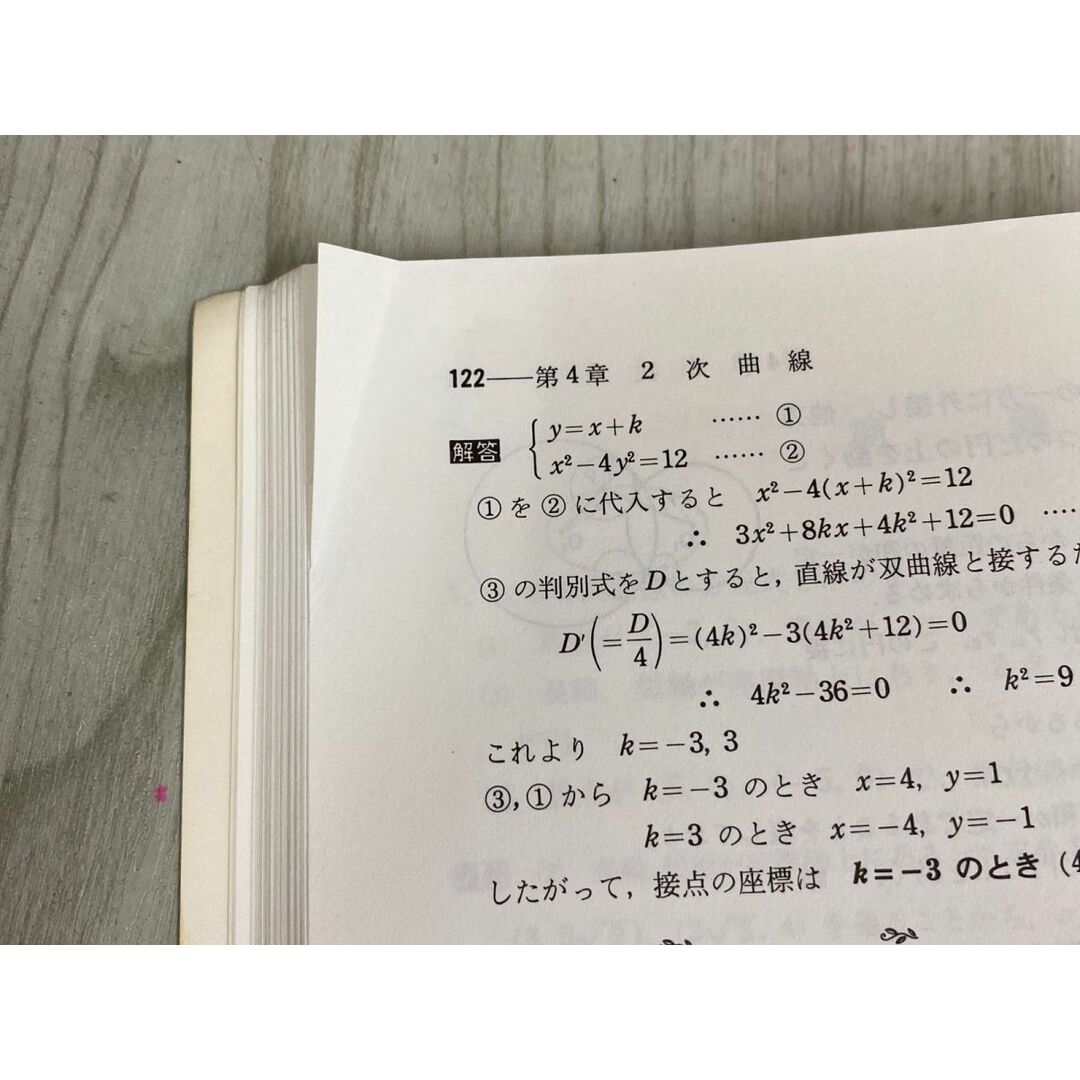 122——第4章 2 次 曲 線
解答 { y=x+k …… ①
x²−4y²=12 …… ②
①を②に代入すると x²−4(x+k)²=12
∴ 3x²+8kx+4k²+12=0 ……
③の判別式をDとすると，直線が双曲線と接する
D′(=D/4)=(4k)²−3(4k²+12)=0
∴ 4k²−36=0 ∴ k²=9
これより k=−3, 3
③,①から k=−3 のとき x=4, y=1
k=3 のとき x=−4, y=−1
したがって，接点の座標は k=−3 のとき (4